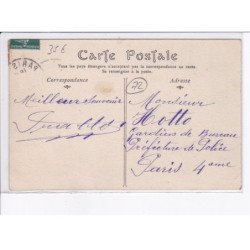 35 €
Carte Postale
Tous les pays étrangers n'acceptent pas la correspondance au recto.
Se renseigner à la poste.
Correspondance
Adresse
72
Meilleur souvenir
Monsieur
Hotto
Gardien de Bureau
Préfecture de Police
Paris 4ème